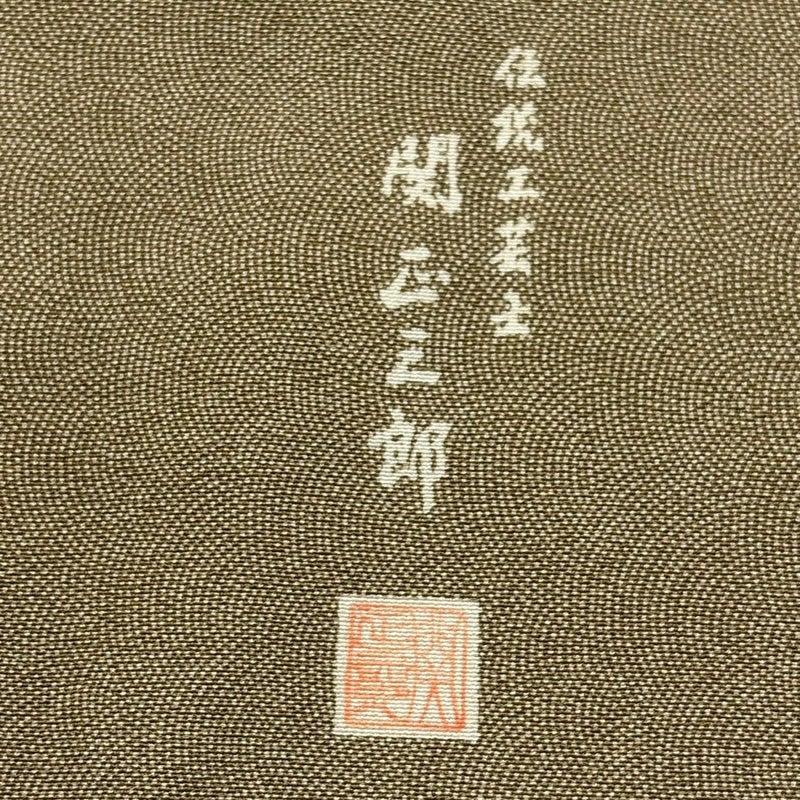 伝統工芸士
関正三郎